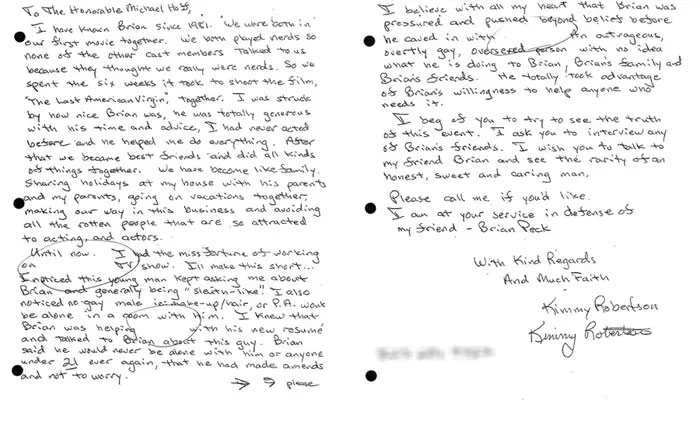 To The Honorable Michael Hoff,
I have known Brian since 1981. We were both in
our first movie together. We both played nerds so
none of the other cast members talked to us
because they thought we really were nerds. So we
spent the six weeks it took to shoot the film,
The Last American Virgin, together. I was struck
by how nice Brian was, he was totally generous
with his time and advice, I had never acted
before and he helped me do everything. After
that we became best friends and did all kinds
of things together. We have become like family.
Sharing holidays at my house with his parents
and my parents, going on vacations together,
making our way in this business and avoiding
all the rotten people that are so attracted
to acting, and actors.
Until now. I had the missfortune of working
on TV show. I'll make this short...
I noticed this young man kept asking me about
Brian and generally being "sleuth-like". I also
noticed no gay male in make-up/hair, or P.A. wont
be alone in a room with him. I knew that
Brian was helping with his new resumé
and talked to Brian about this guy. Brian
said he would never be alone with him or anyone
under 21 ever again, that he had made amends
and not to worry.
→ please
I believe with all my heart that Brian was
pressured and pushed beyond belief before
he caved in with An outrageous,
overtly gay, oversexed person with no idea
what he is doing to Brian, Brian's family and
Brian's friends. He totally took advantage
of Brian's willingness to help anyone who
needs it.
I beg of you to try to see the truth
of this event. I ask you to interview any
of Brian's friends. I wish you to talk to
my friend Brian and see the rarity of an
honest, sweet and caring man.
Please call me if you'd like.
I am at your service in defense of
my friend - Brian Peck
With Kind Regards
And Much Faith
Kimmy Robertson
Kimmy Robertson